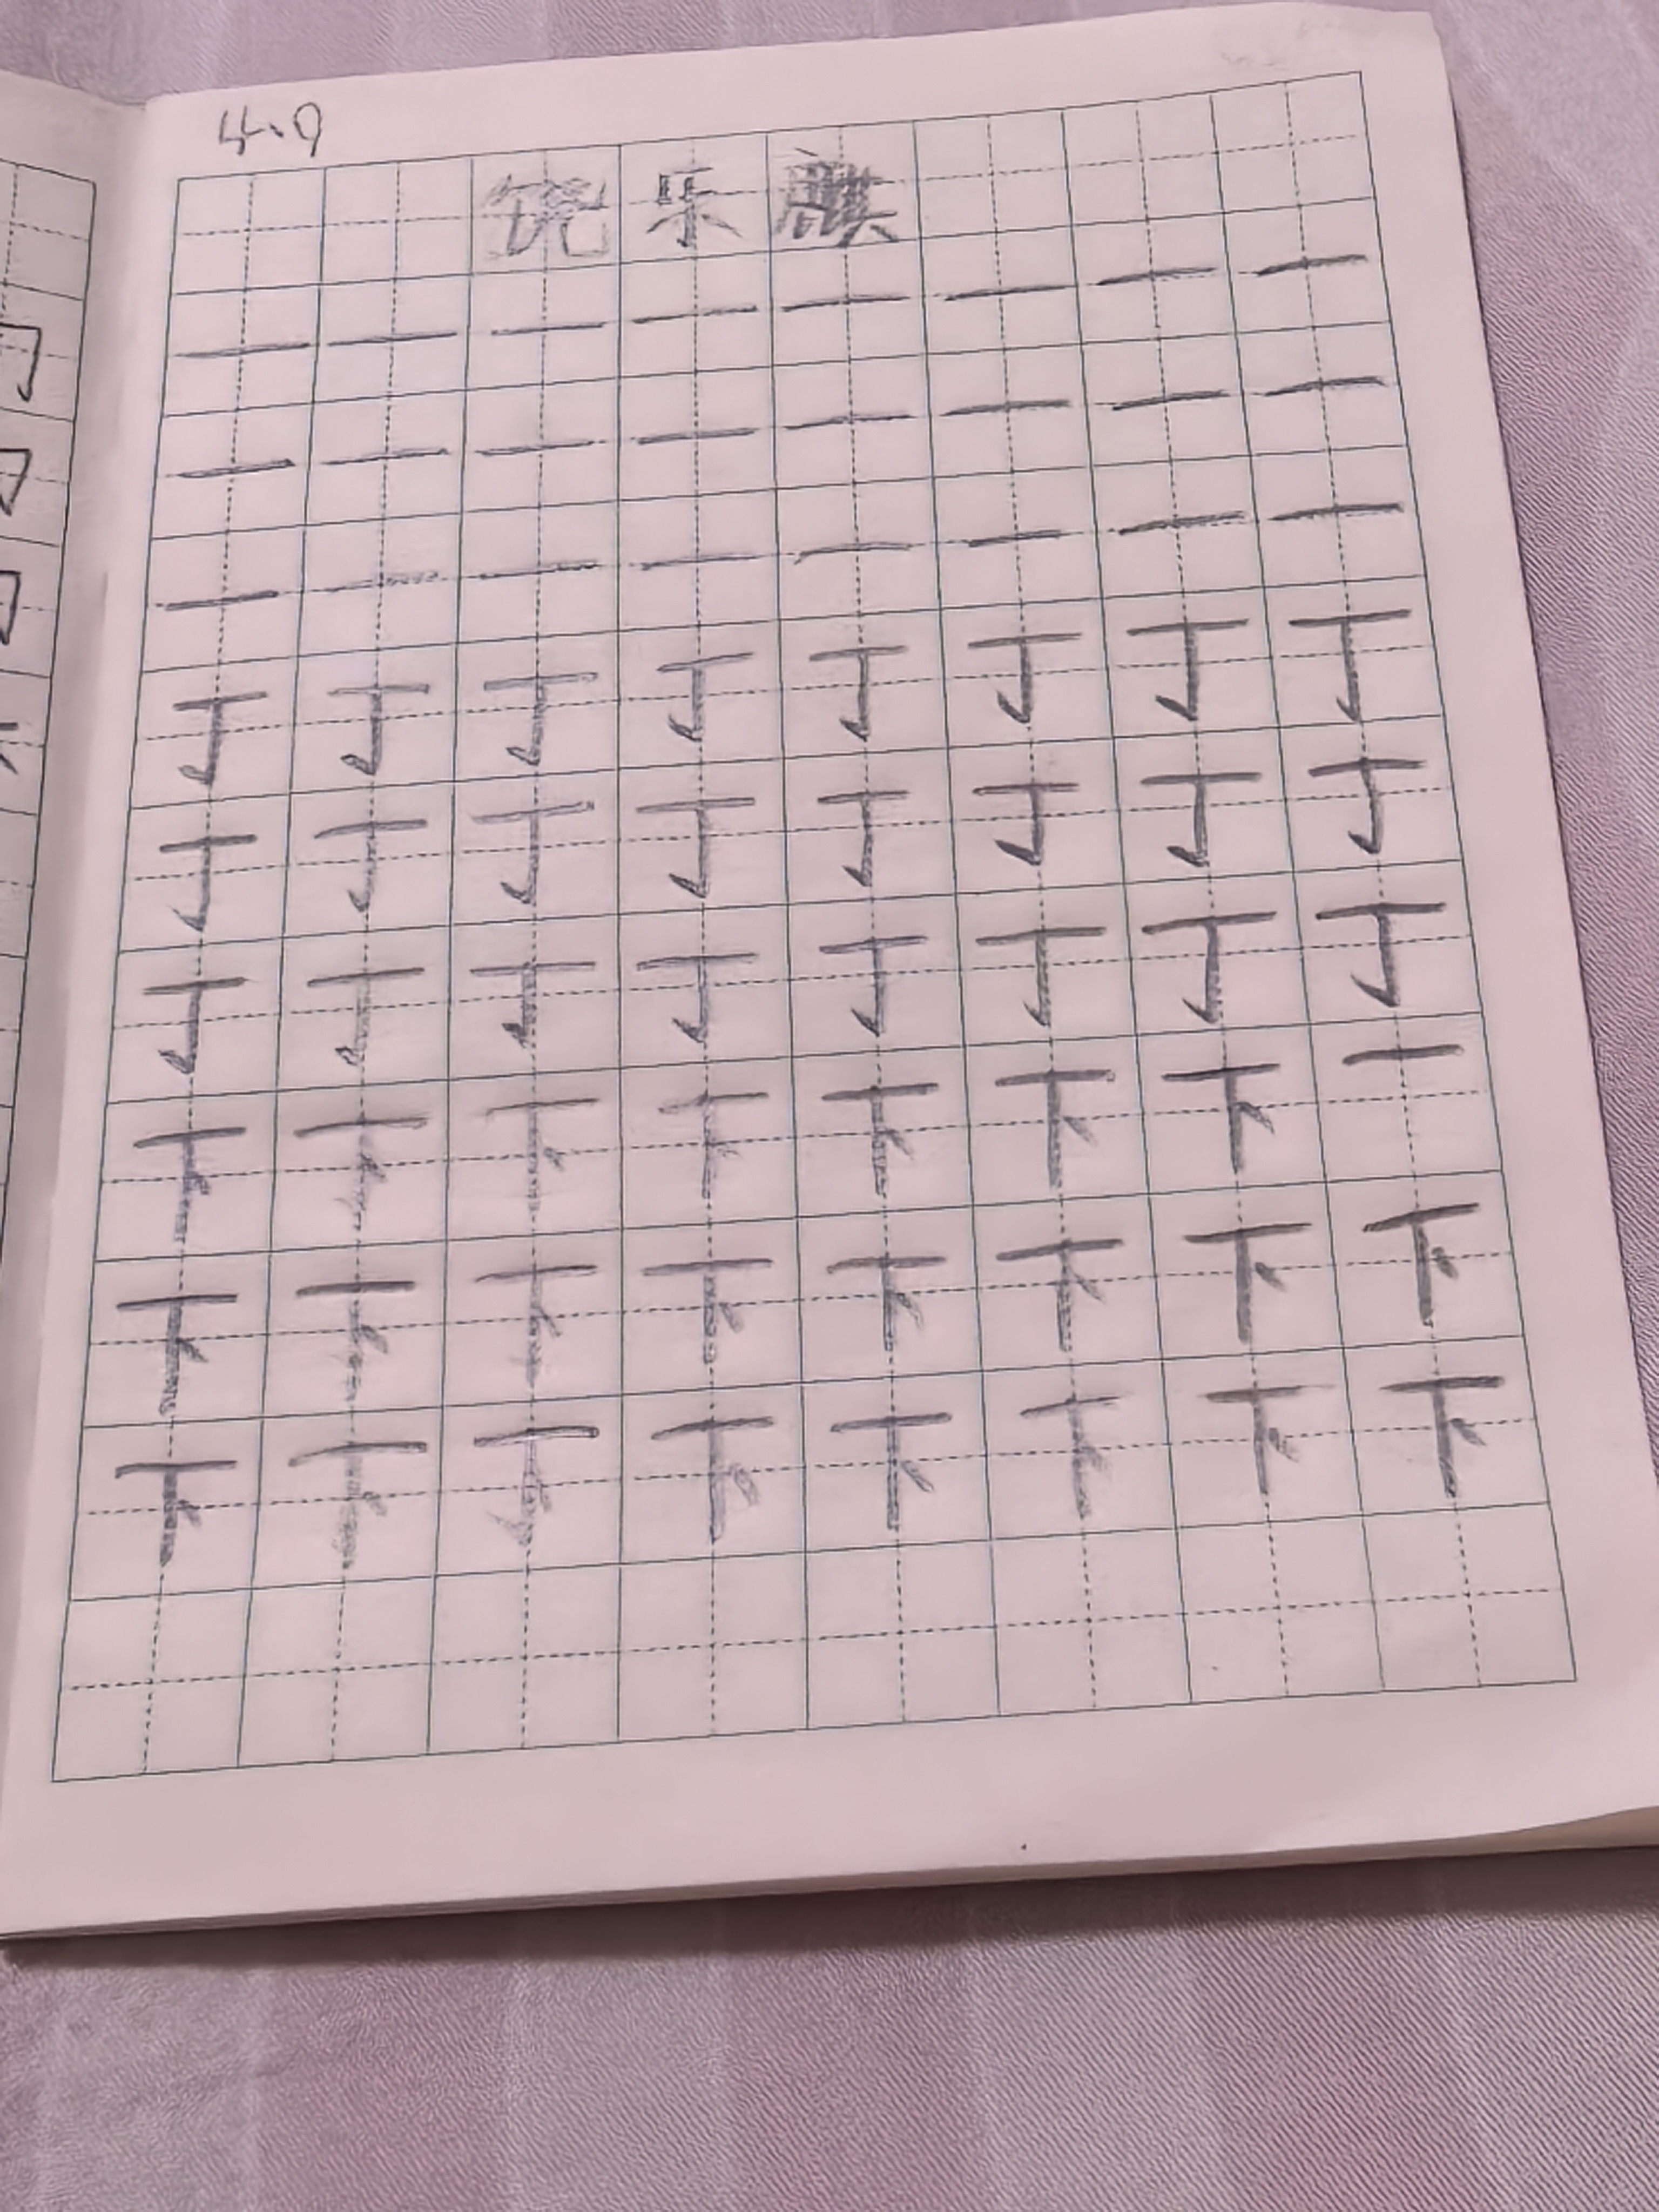 4.9
乐
一 一 一 一 一 一 一 一
一 一 一 一 一 一 一 一
一 一 一 一 一 一 一 一
丁 丁 丁 丁 丁 丁 丁 丁
丁 丁 丁 丁 丁 丁 丁 丁
丁 丁 丁 丁 丁 丁 丁 丁
下 下 下 下 下 下 下 一
下 下 下 下 下 下 下 下
下 下 下 下 下 下 下 下